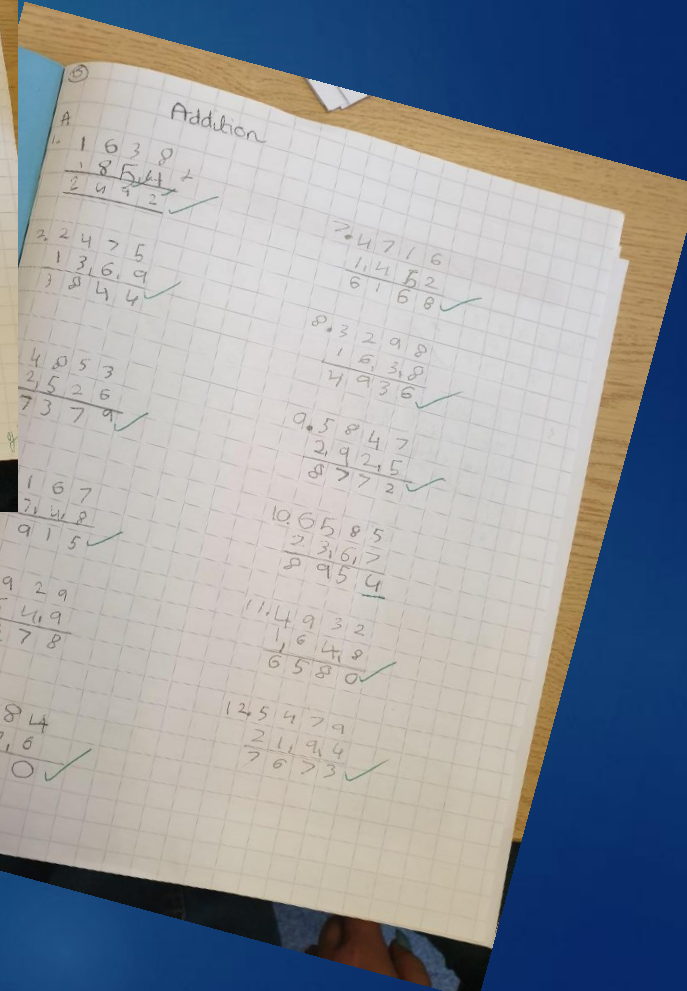 B
Addition
A
1. 1 6 3 8
2 4 9 2
2. 2 4 7 5
1 3 6 9
3 8 4 4
4 8 5 3
2 5 2 6
7 3 7 9
1 6 7
7 4 8
9 1 5
9 2 9
4 9
7 8
8 4
6
0
7. 4 7 1 6
1 4 5 2
6 1 6 8
8. 3 2 9 8
1 6 3 8
4 9 3 6
9. 5 8 4 7
2 9 2 5
8 7 7 2
10. 6 5 8 5
2 3 6 7
8 9 5 4
11. 4 9 3 2
1 6 4 8
6 5 8 0
12. 5 4 7 9
2 1 9 4
7 6 7 3